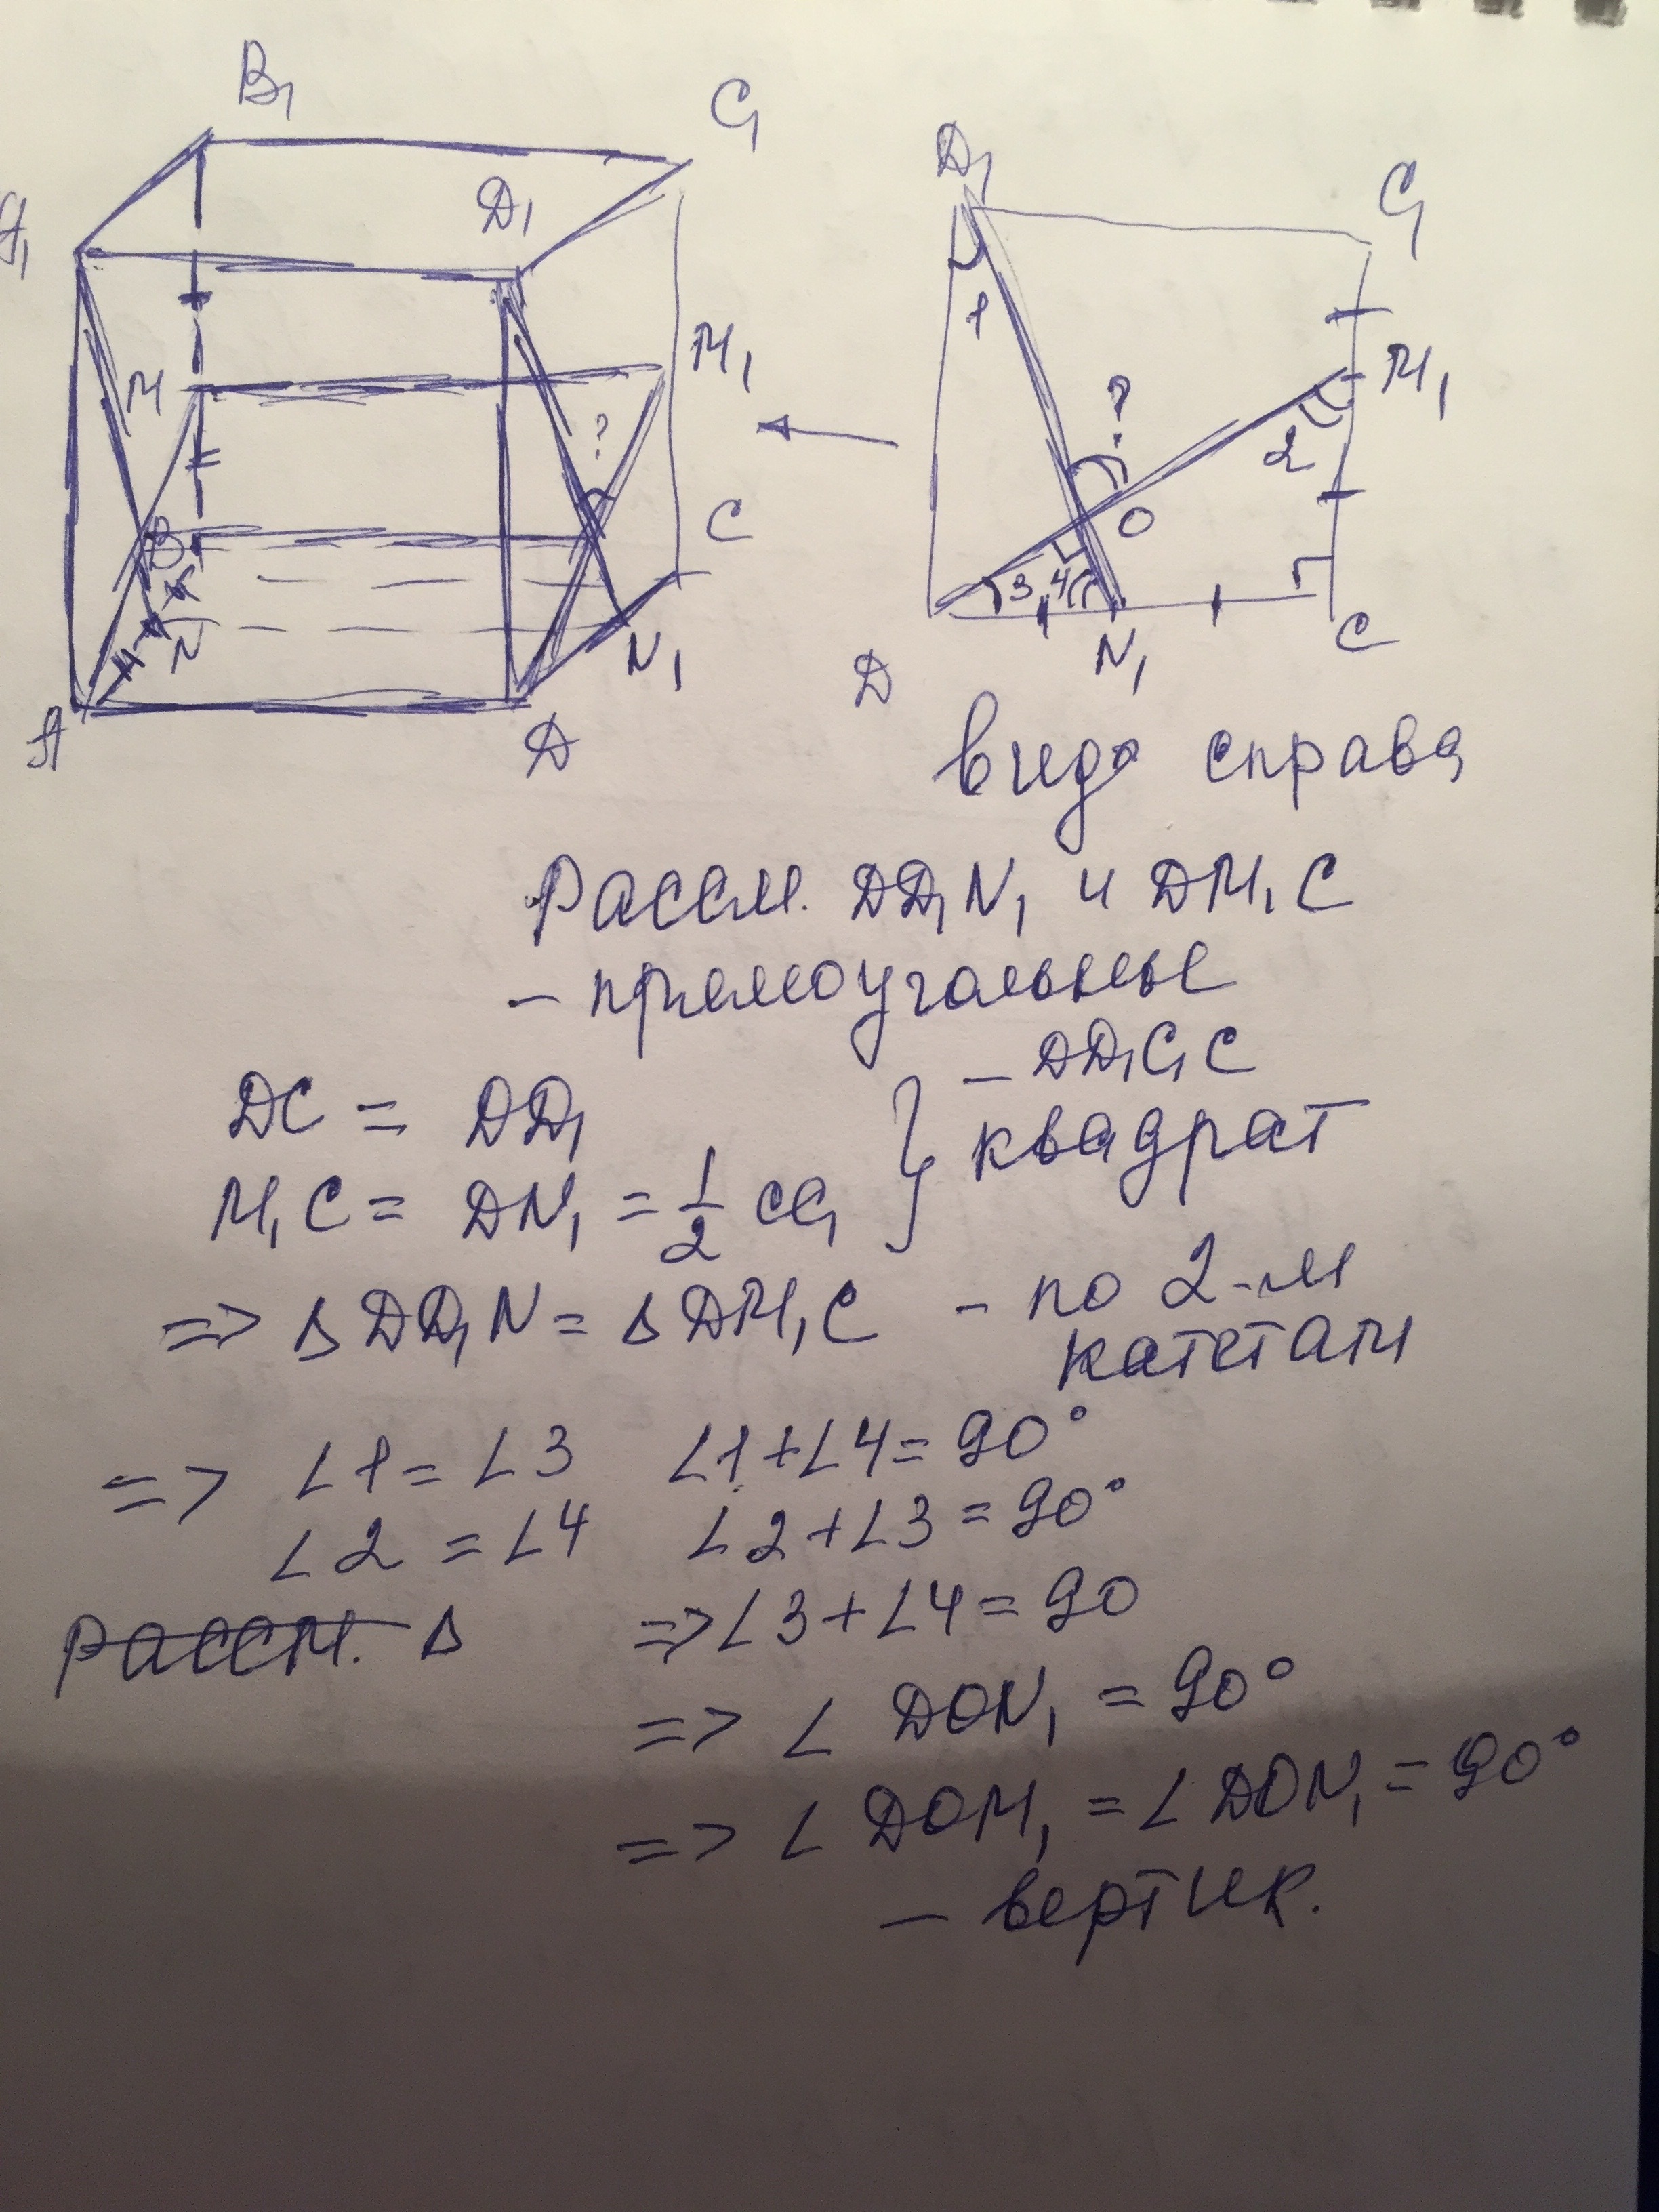 B₁
C₁
A₁
D₁
M
M₁
?
B
C
N
N₁
A
D
D₁
C₁
1
?
M₁
2
O
3
4
D
N₁
C
вид справа
Рассм. DD₁N₁ и DM₁C
– прямоугольные
DC = DD₁
M₁C = DN₁ = 1/2 CC₁
} – DD₁C₁C
квадрат
=> Δ DD₁N = Δ DM₁C – по 2-м
катетам
=> ∠1 = ∠3 ∠1+∠4 = 90°
∠2 = ∠4 ∠2+∠3 = 90°
Рассм. Δ => ∠3+∠4 = 90
=> ∠ DON₁ = 90°
=> ∠ DOM₁ = ∠ DON₁ = 90°
– вертик.